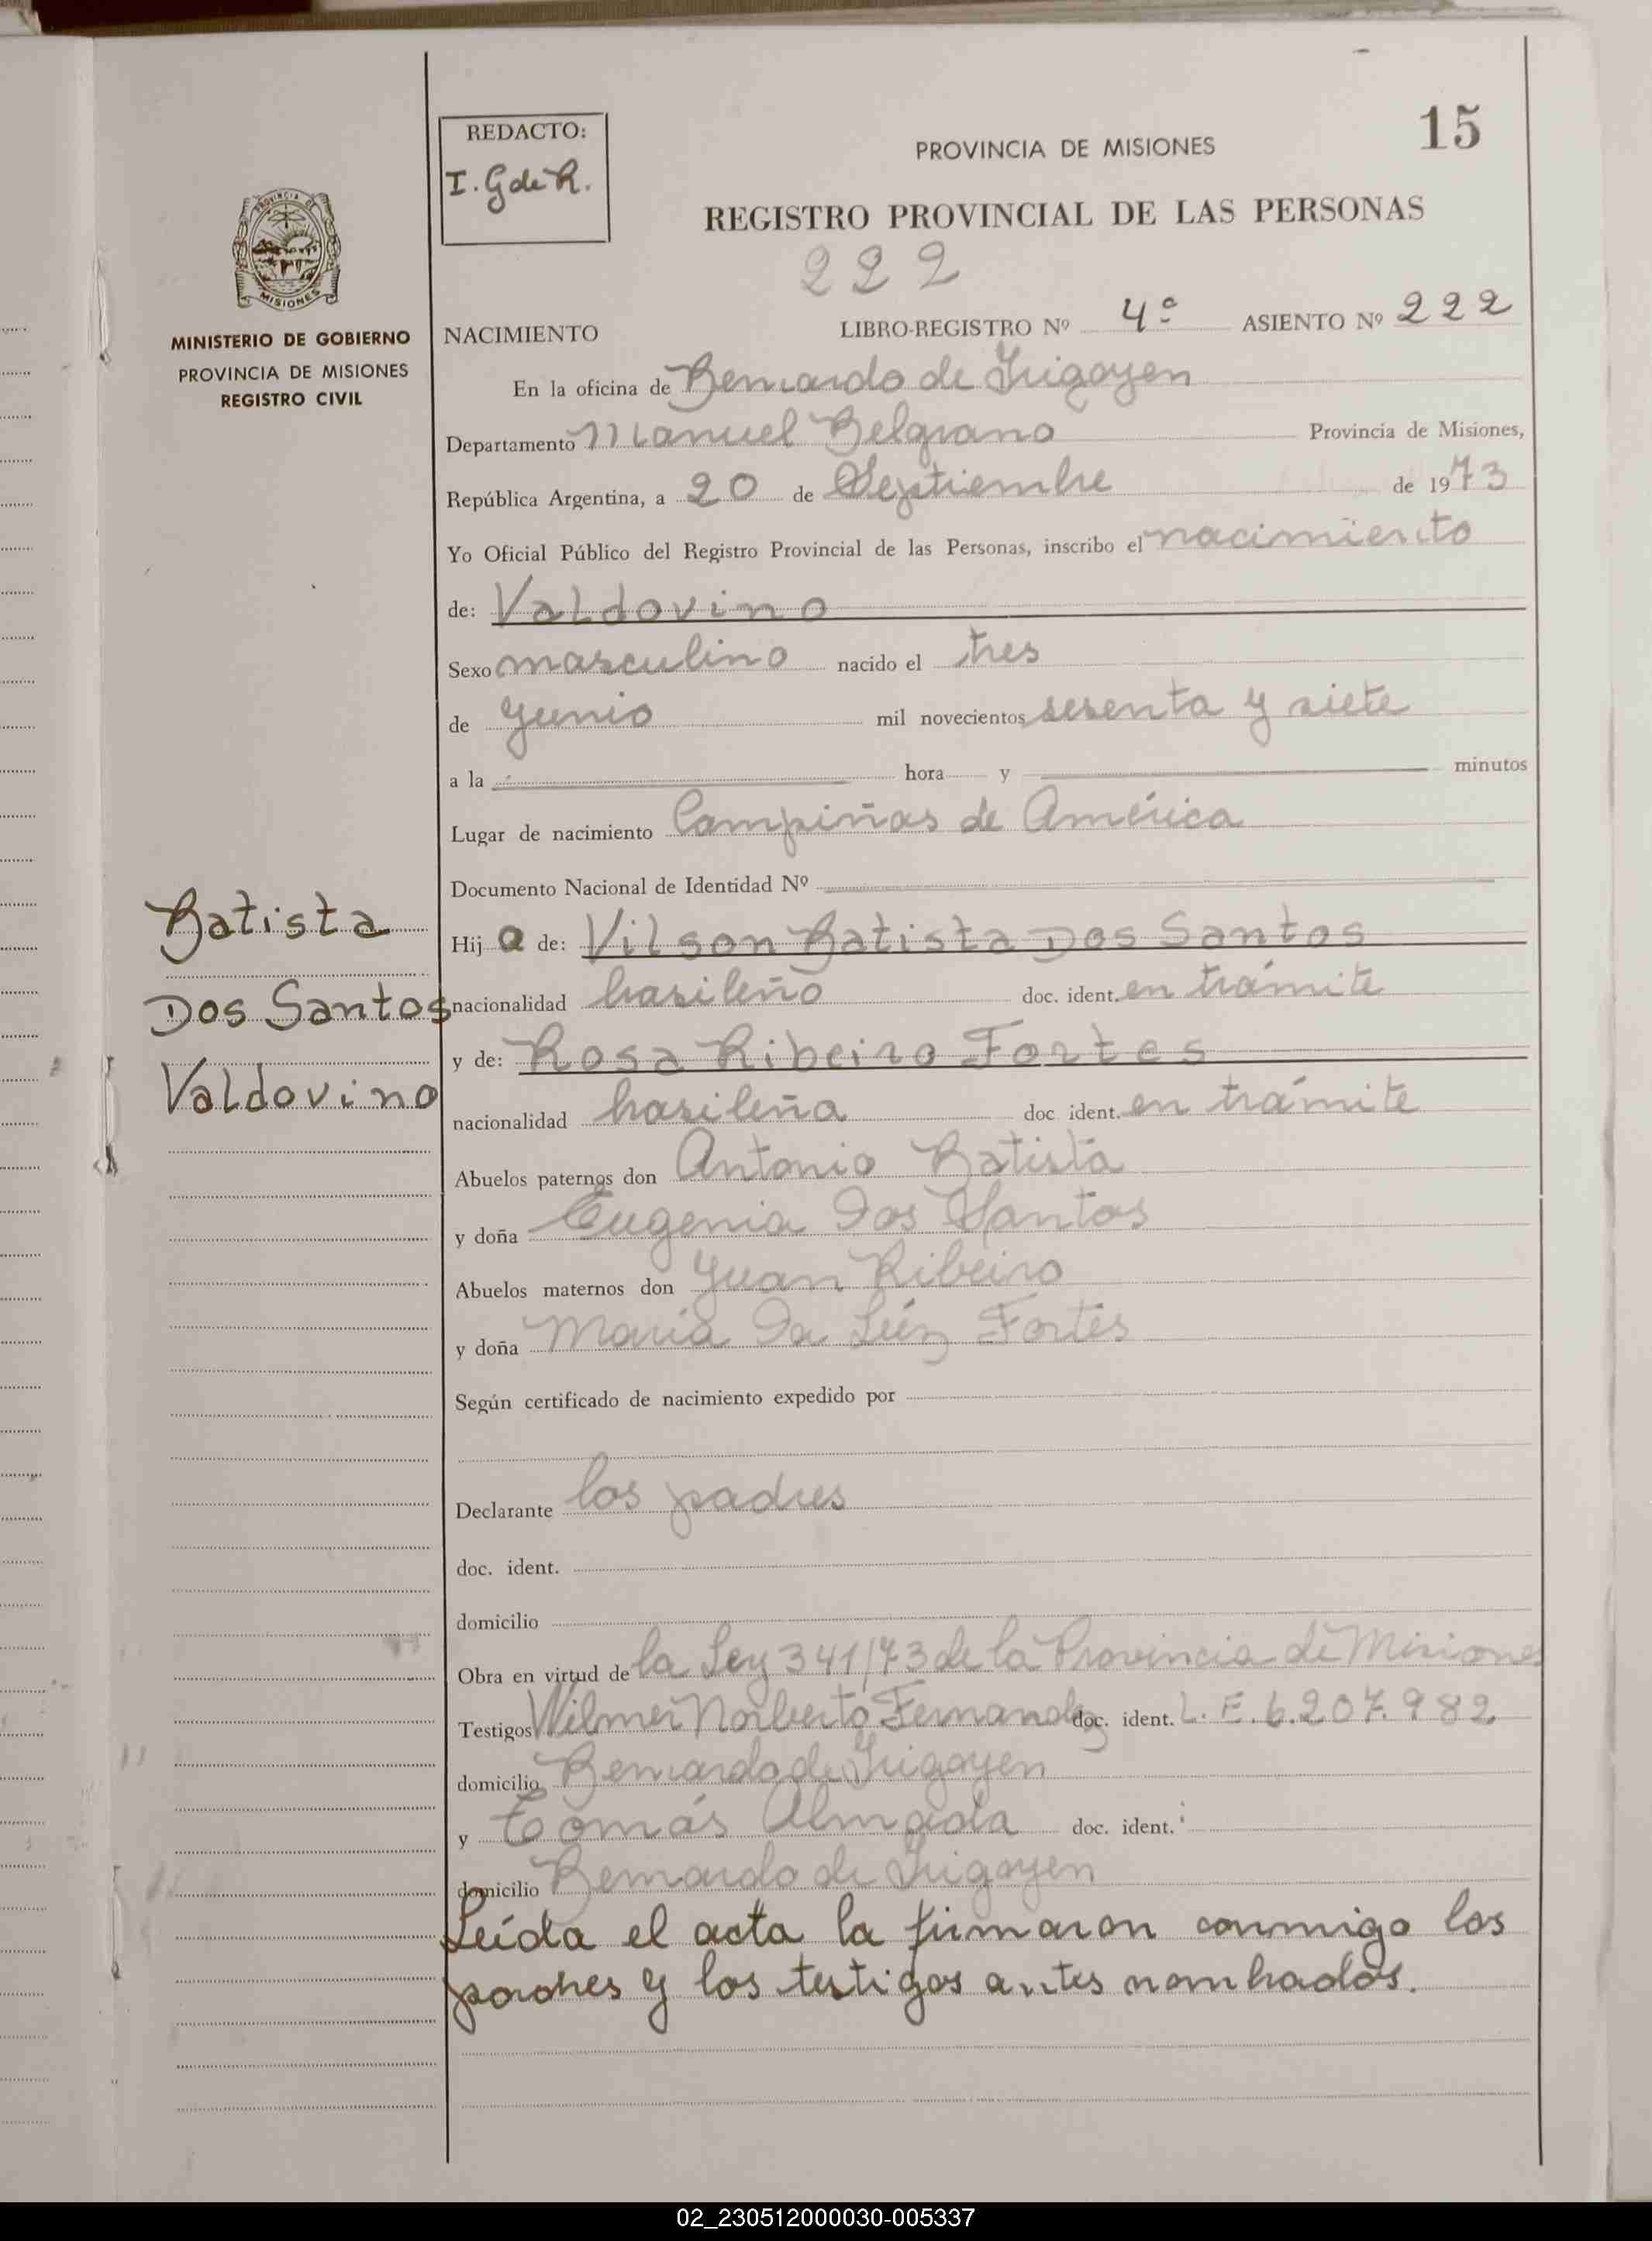 15
REDACTO:
I. G de R.
PROVINCIA DE MISIONES
REGISTRO PROVINCIAL DE LAS PERSONAS
222
PROVINCIA DE
MISIONES
MINISTERIO DE GOBIERNO
PROVINCIA DE MISIONES
REGISTRO CIVIL
NACIMIENTO LIBRO-REGISTRO Nº 4º ASIENTO Nº 222
En la oficina de Bernardo de Irigoyen
Departamento Manuel Belgrano Provincia de Misiones,
República Argentina, a 20 de Septiembre de 1973
Yo Oficial Público del Registro Provincial de las Personas, inscribo el nacimiento
de: Valdovino
Sexo masculino nacido el tres
de Junio mil novecientos sesenta y siete
a la hora y minutos
Lugar de nacimiento Campiñas de América
Documento Nacional de Identidad Nº
Batista
Dos Santos
Valdovino
Hij o de: Vilson Batista Dos Santos
nacionalidad brasileño doc. ident. en trámite
y de: Rosa Ribeiro Fortes
nacionalidad brasileña doc ident. en trámite
Abuelos paternos don Antonio Batista
y doña Eugenia Dos Santos
Abuelos maternos don Juan Ribeiro
y doña María Da Lúz Fortes
Según certificado de nacimiento expedido por
Declarante los padres
doc. ident.
domicilio
Obra en virtud de la Ley 341/73 de la Provincia de Misiones
Testigos Wilmer Norberto Fernandez doc. ident. L. E. 6.207.982
domicilio Bernardo de Irigoyen
y Tomás Almada doc. ident.
domicilio Bernardo de Irigoyen
Leída el acta la firmaron conmigo los
padres y los testigos antes nombrados.
02_230512000030-005337